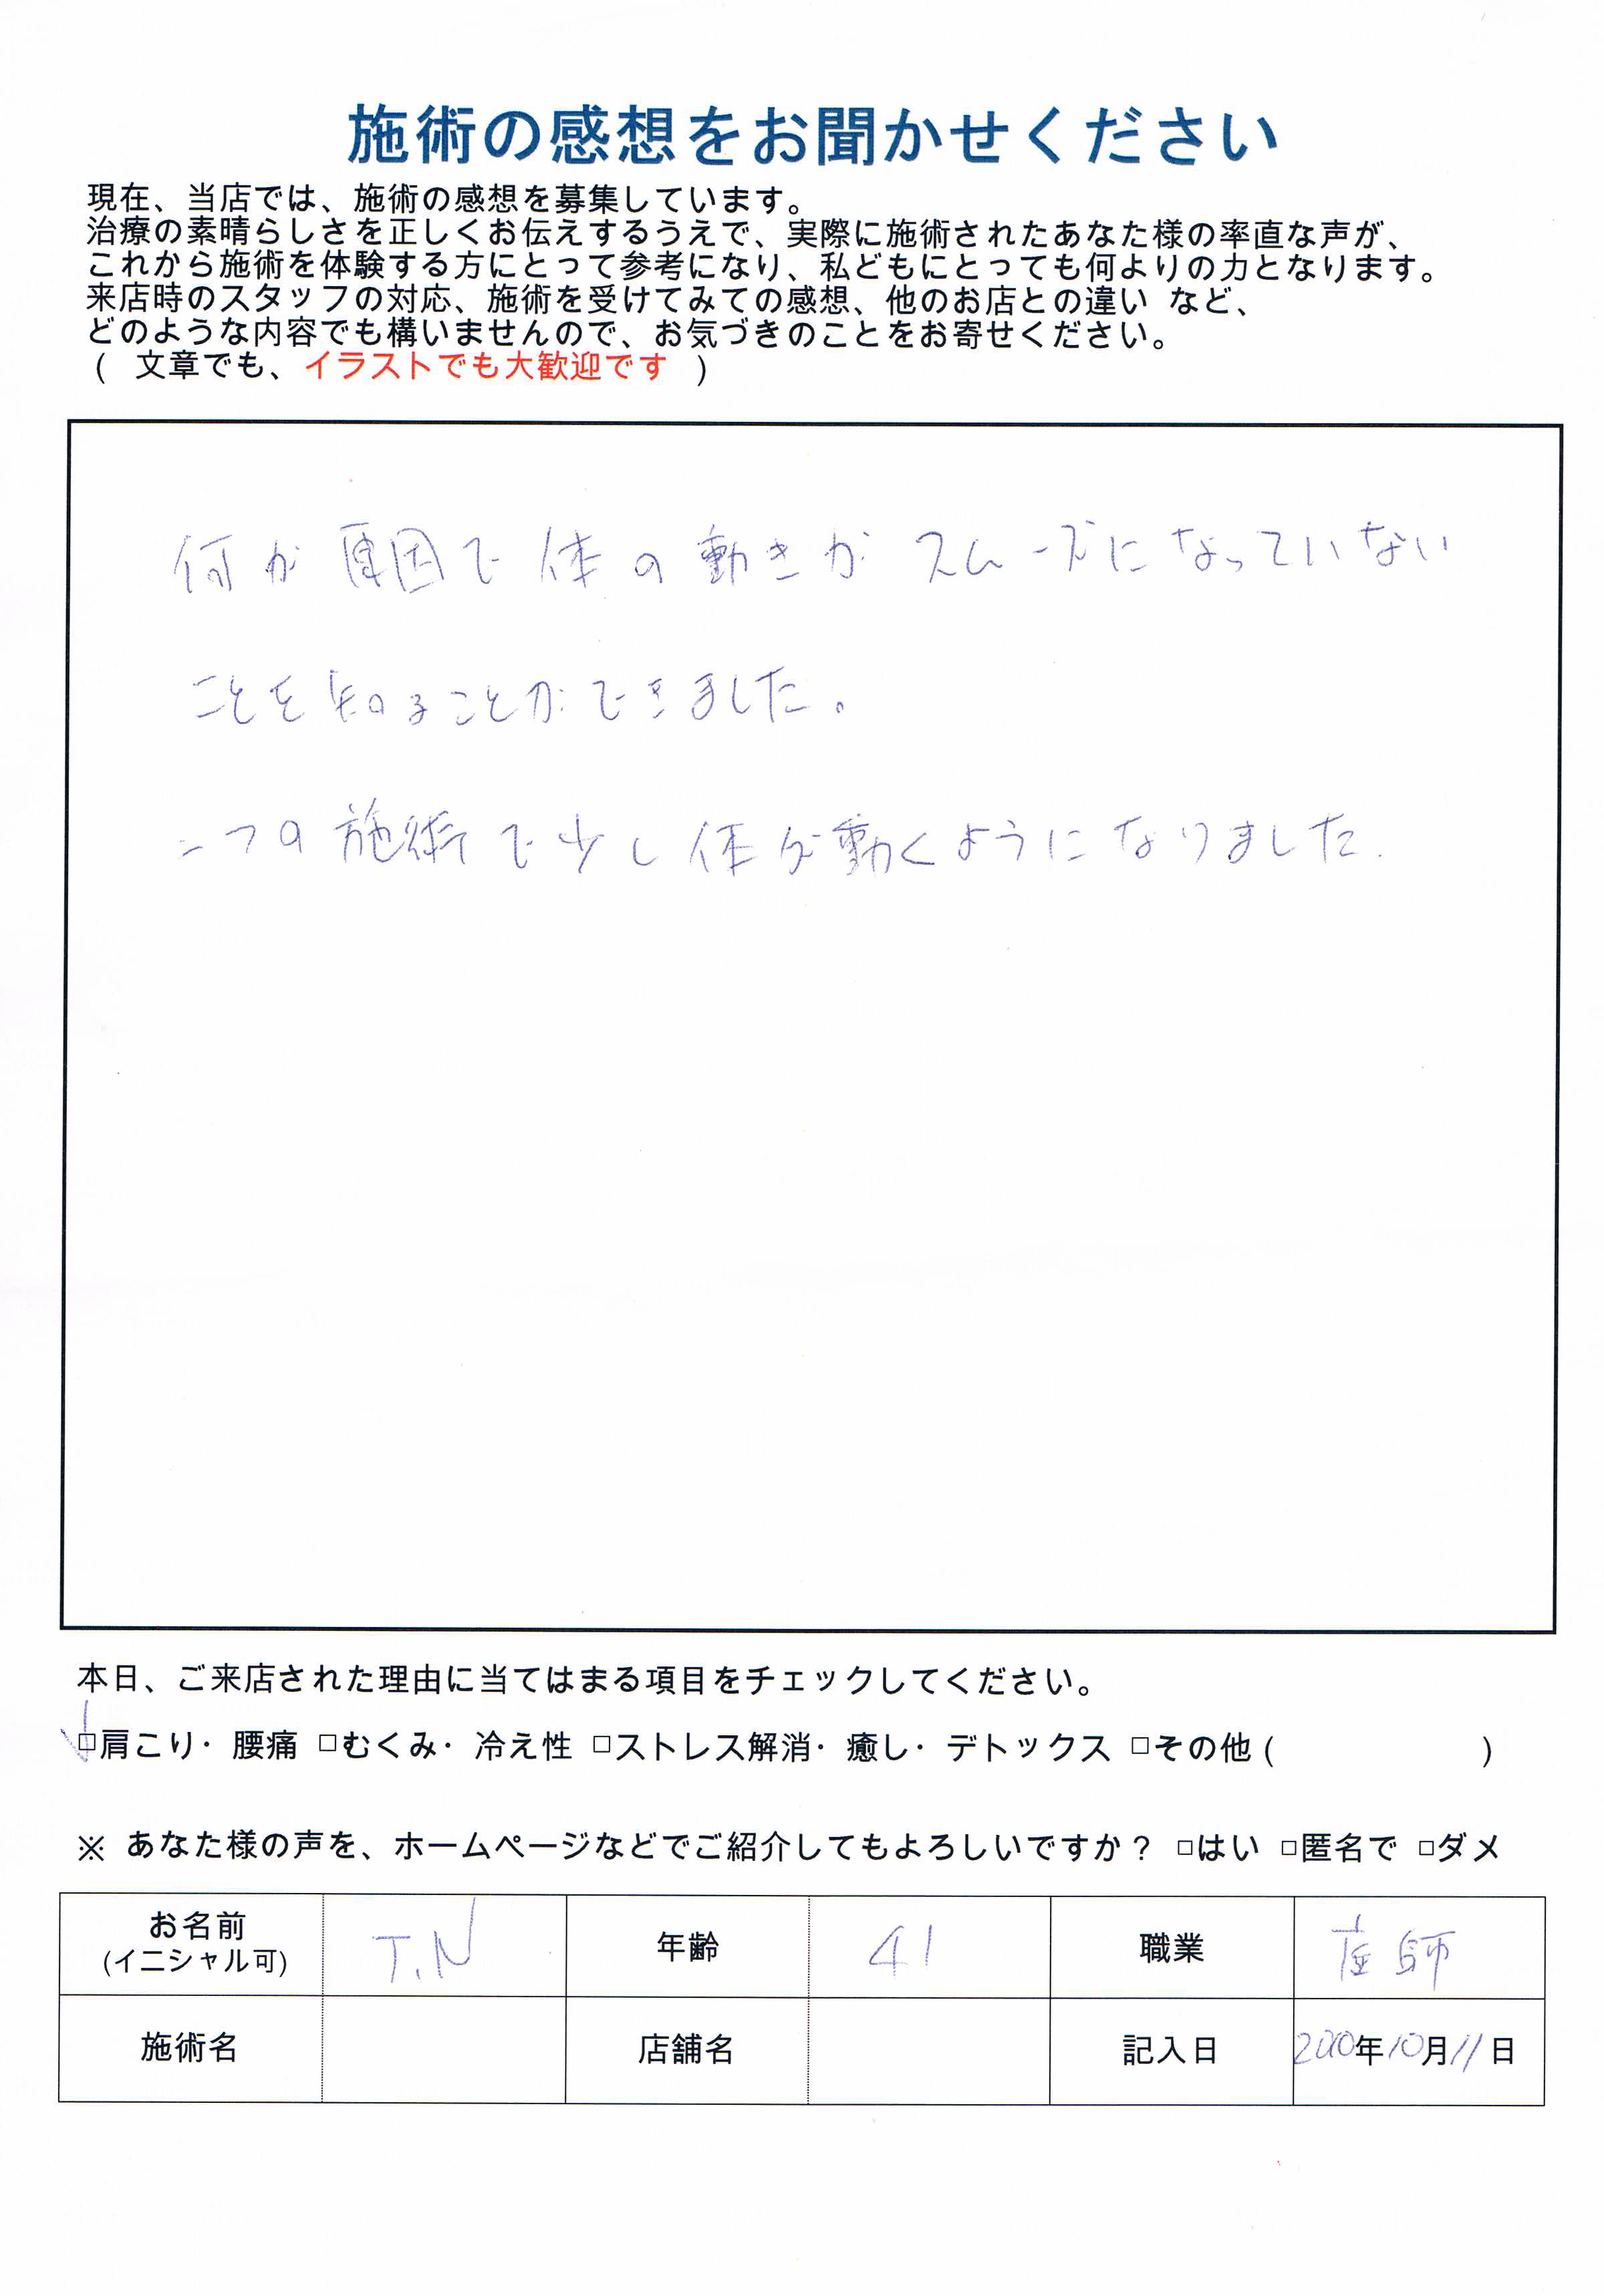 施術の感想をお聞かせください
現在、当店では、施術の感想を募集しています。
治療の素晴らしさを正しくお伝えするうえで、実際に施術されたあなた様の率直な声が、
これから施術を体験する方にとって参考になり、私どもにとっても何よりの力となります。
来店時のスタッフの対応、施術を受けてみての感想、他のお店との違い など、
どのような内容でも構いませんので、お気づきのことをお寄せください。
( 文章でも、イラストでも大歓迎です )
何が原因で体の動きがスムーズになっていない
ことを知ることができました。
二つの施術で少し体が動くようになりました.
本日、ご来店された理由に当てはまる項目をチェックしてください。
☑肩こり・腰痛 □むくみ・冷え性 □ストレス解消・癒し・デトックス □その他 ( )
※ あなた様の声を、ホームページなどでご紹介してもよろしいですか? □はい □匿名で □ダメ
お名前 T.N 年齢 41 職業 師
(イニシャル可)
施術名 店舗名 記入日 年10月11日